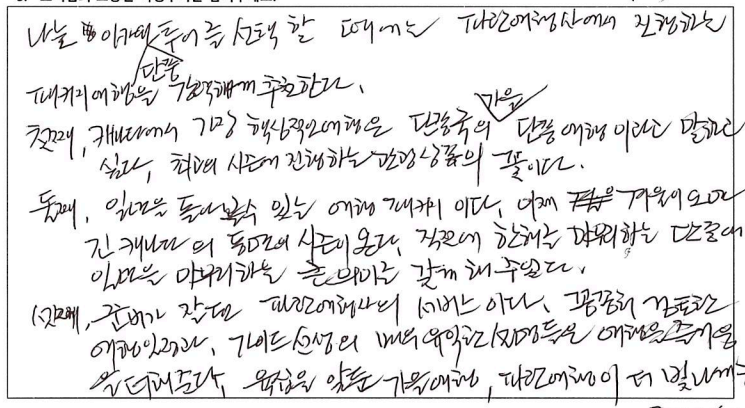 나는 이카의 투어를 선택 할 때에는 파란여행사에서 진행하는
단풍
패키지여행을 강력하게 추천한다.
가을
첫째, 캐나다에서 가장 핵심적인 여행은 단풍국의 단풍여행 이라고 말하고
싶다, 최고의 시즌에 진행하는 관광상품의 꽃이다.
둘째, 일년을 돌아볼수 있는 여행 패키지 이다, 이제 겨울이 오면
긴 캐나다의 동면의 시즌이 온다, 직전에 한해를 마무리하는 단풍에
일년을 마무리하는 큰 의미를 갖게 해 주었다.
셋째, 준비가 잘된 파란여행사의 서비스 이다, 꼼꼼히 검토한
여행일정과, 가이드 선생의 매우 유익한 설명들은 여행을 즐거움
을 더해준다, 육십을 앞둔 가을여행, 파란여행이 더 빛나게